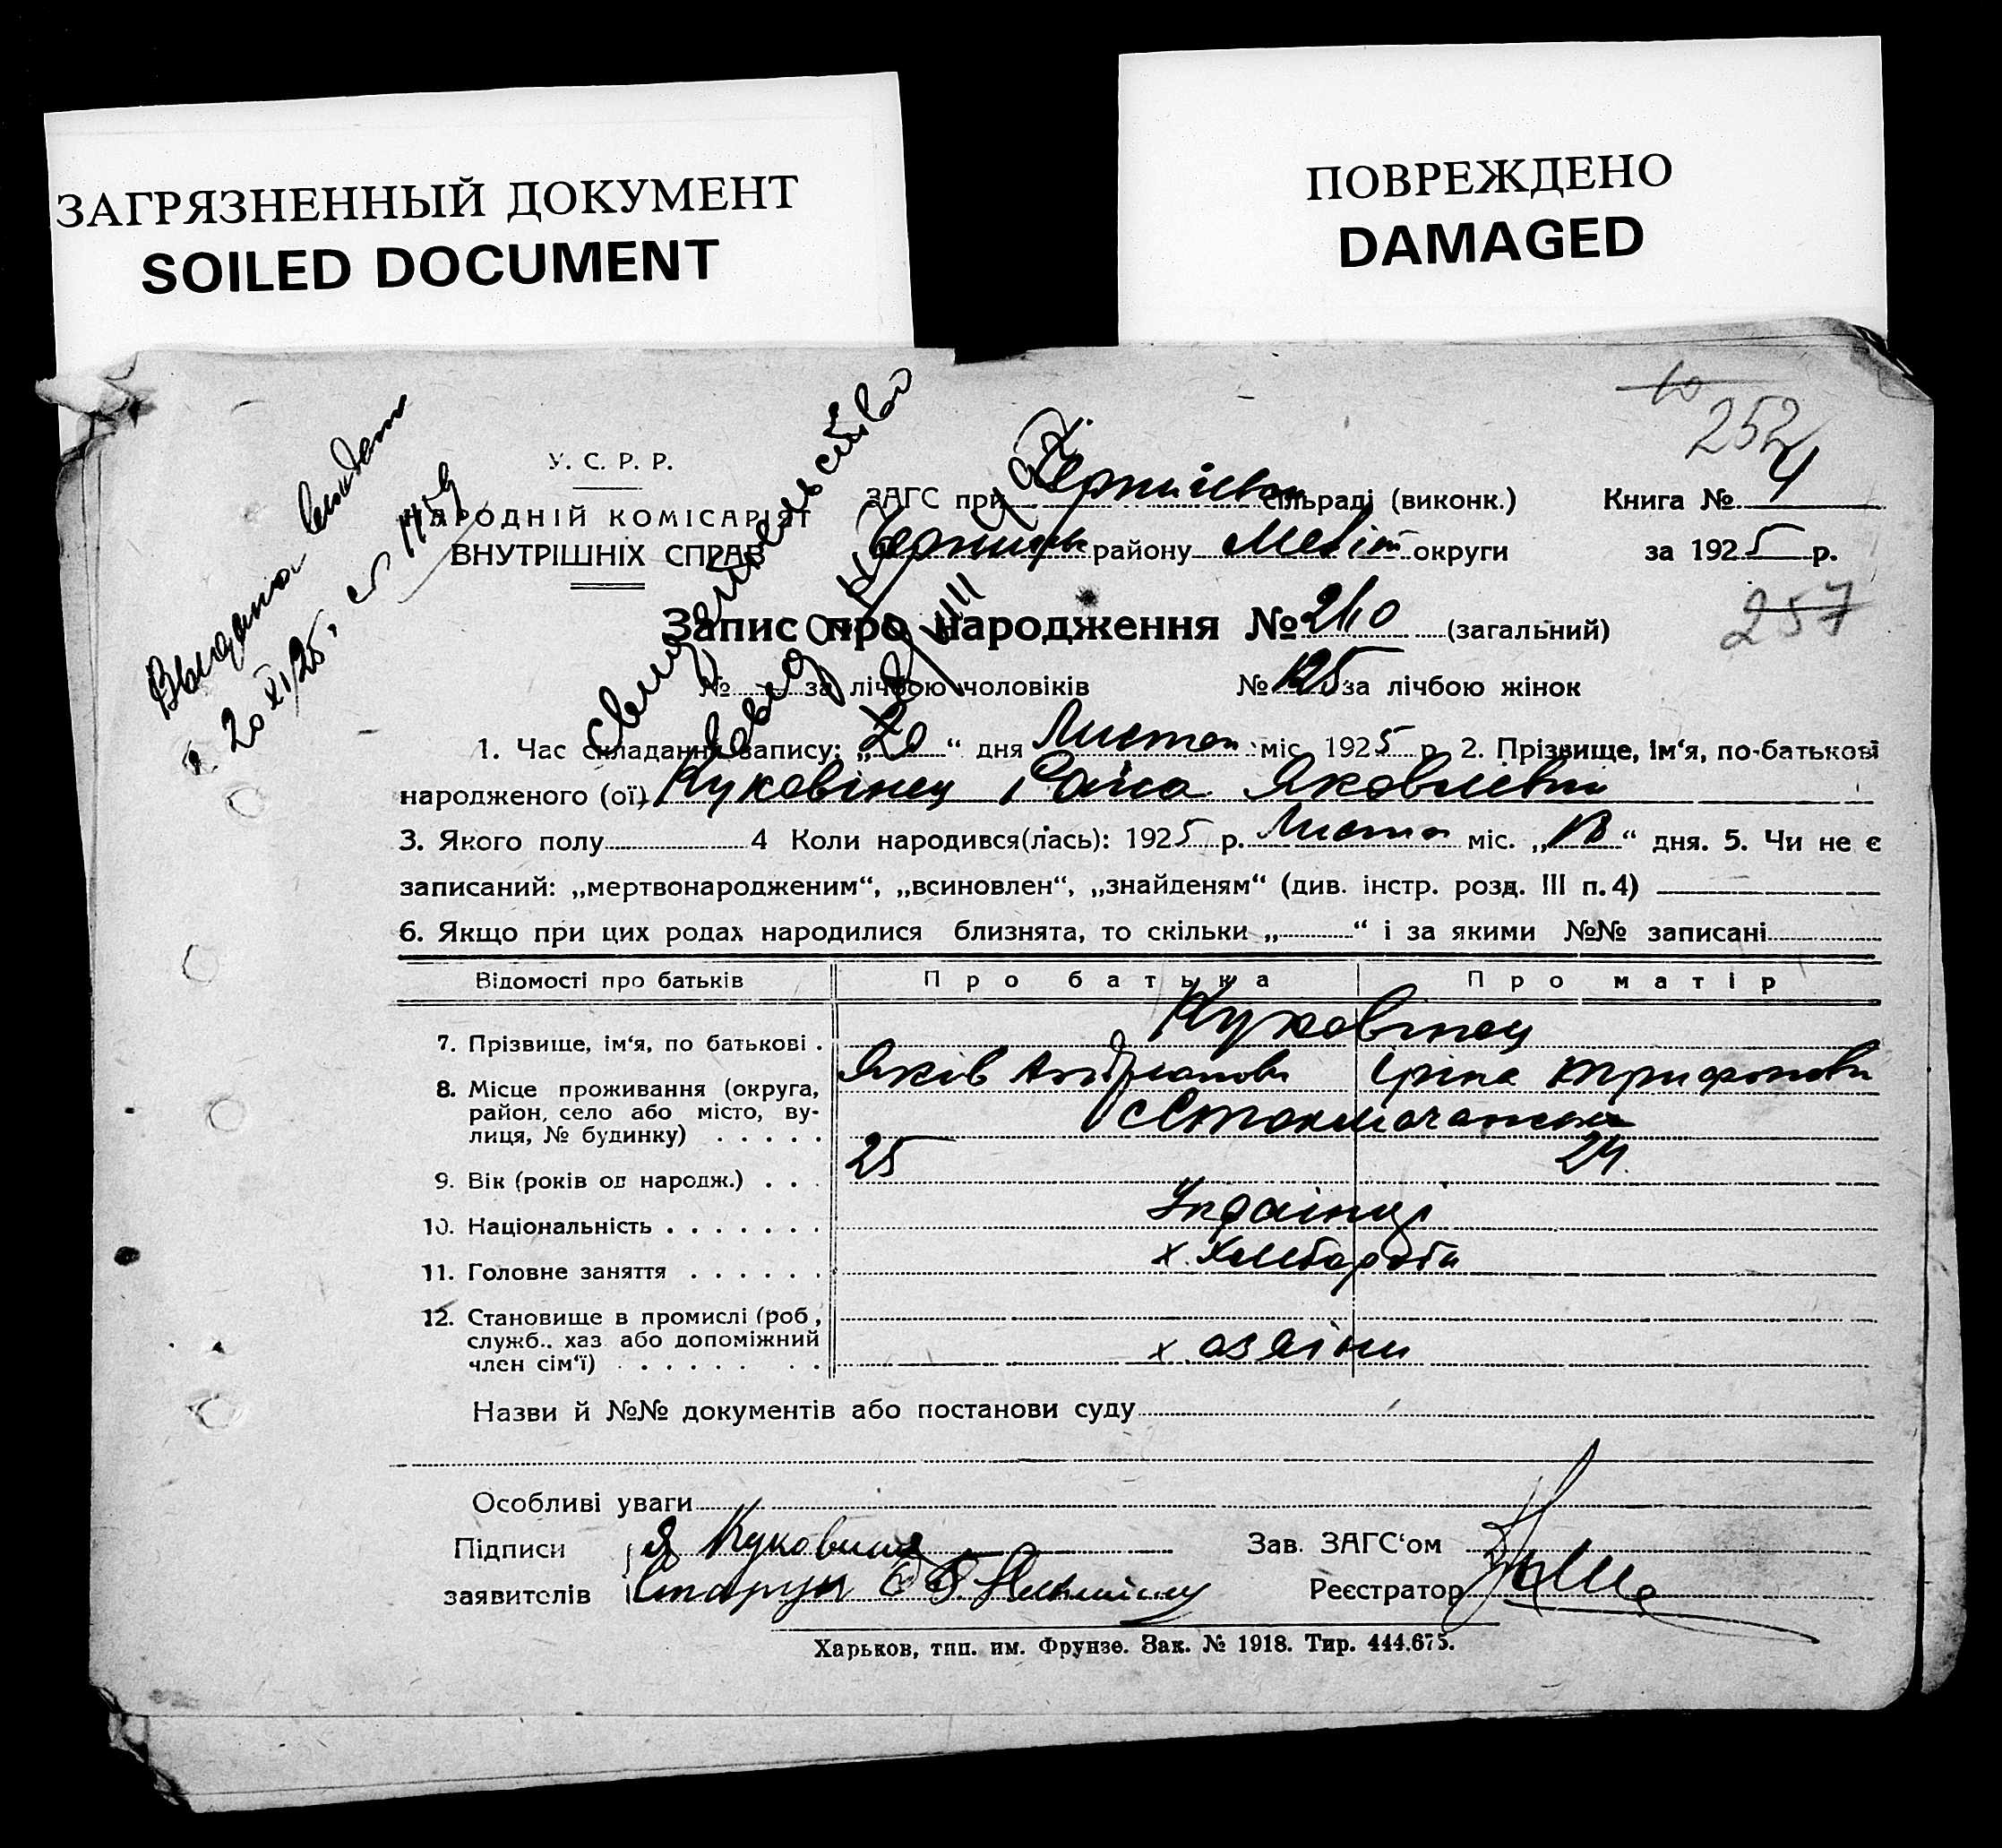 ЗАГРЯЗНЕННЫЙ ДОКУМЕНТ
SOILED DOCUMENT
ПОВРЕЖДЕНО
DAMAGED
252
У. С. Р. Р.
НАРОДНІЙ КОМІСАРІЯТ
ВНУТРІШНІХ СПРАВ
ЗАГС при сільраді (виконк.) Книга № 4
району Меліт округи за 1925 р.
Выдана
20 XI/25.
свидетельство
Запис про народження № 210 (загальний)
257
№ за лічбою чоловіків № 125 за лічбою жінок
1. Час складання запису: „20“ дня Листоп міс. 1925 р. 2. Прізвище, ім‘я, по-батькові
народженого (ої) Куковінец Раїса Яковлевна
3. Якого полу 4 Коли народився(лась): 1925 р. Листоп міс. „ “ дня. 5. Чи не є
записаний: „мертвонародженим“, „всиновлен“, „знайденям“ (див. інстр. розд. III п. 4)
6. Якщо при цих родах народилися близнята, то скільки „ “ і за якими №№ записані
Відомості про батьків Про батька Про матір
7. Прізвище, ім‘я, по батькові . Куковінец
Яків Андріянови Іріна Трифонови
8. Місце проживання (округа,
район, село або місто, ву-
лиця, № будинку) . . . . .
9. Вік (років од народж.) . . . 25 24
10. Національність . . . . . . . Українці
11. Головне заняття . . . . . . х. Хлебороби
12. Становище в промислі (роб.,
служб., хаз. або допоміжний
член сім‘ї) . . . . . . . . х. озяіни
Назви й №№ документів або постанови суду
Особливі уваги
Підписи Я Куковинец Зав. ЗАГС‘ом
заявителів Реєстратор
Харьков, тип. им. Фрунзе. Зак. № 1918. Тир. 444.675.